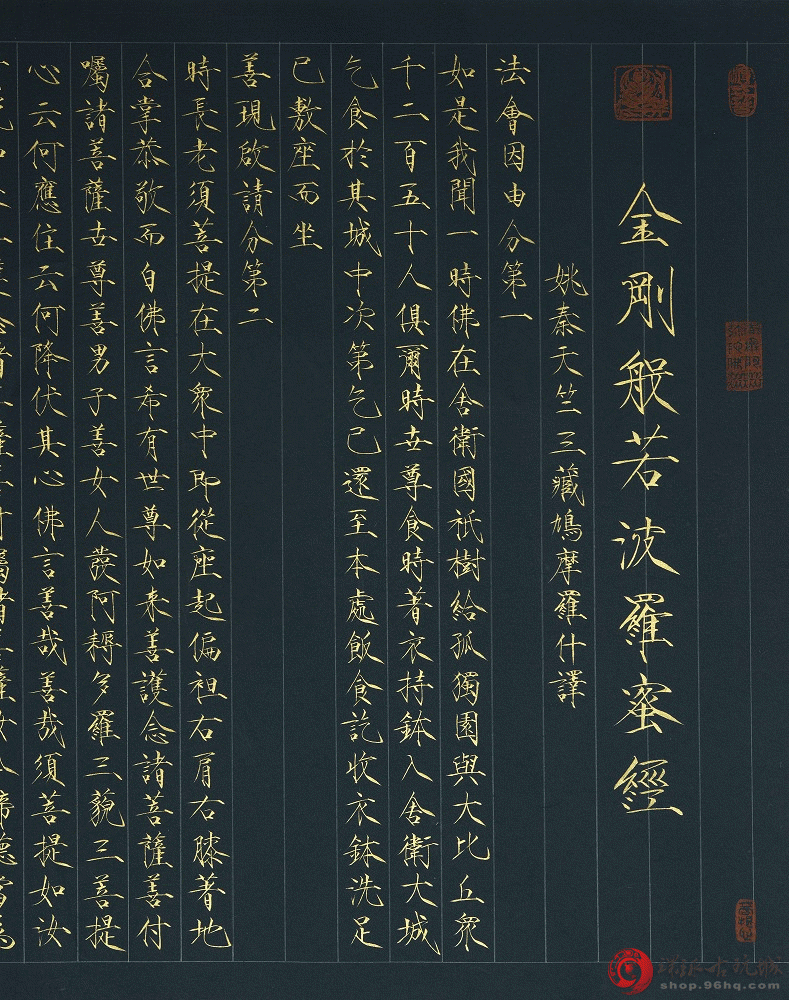 金剛般若波羅蜜經
姚秦天竺三藏鳩摩羅什譯
法會因由分第一
如是我聞一時佛在舍衛國祇樹給孤獨園與大比丘眾
千二百五十人俱爾時世尊食時著衣持鉢入舍衛大城
乞食於其城中次第乞已還至本處飯食訖收衣鉢洗足
已敷座而坐
善現啟請分第二
時長老須菩提在大眾中即從座起偏袒右肩右膝著地
合掌恭敬而白佛言希有世尊如来善護念諸菩薩善付
囑諸菩薩世尊善男子善女人發阿耨多羅三藐三菩提
心云何應住云何降伏其心佛言善哉善哉須菩提如汝
shop.96hq.com